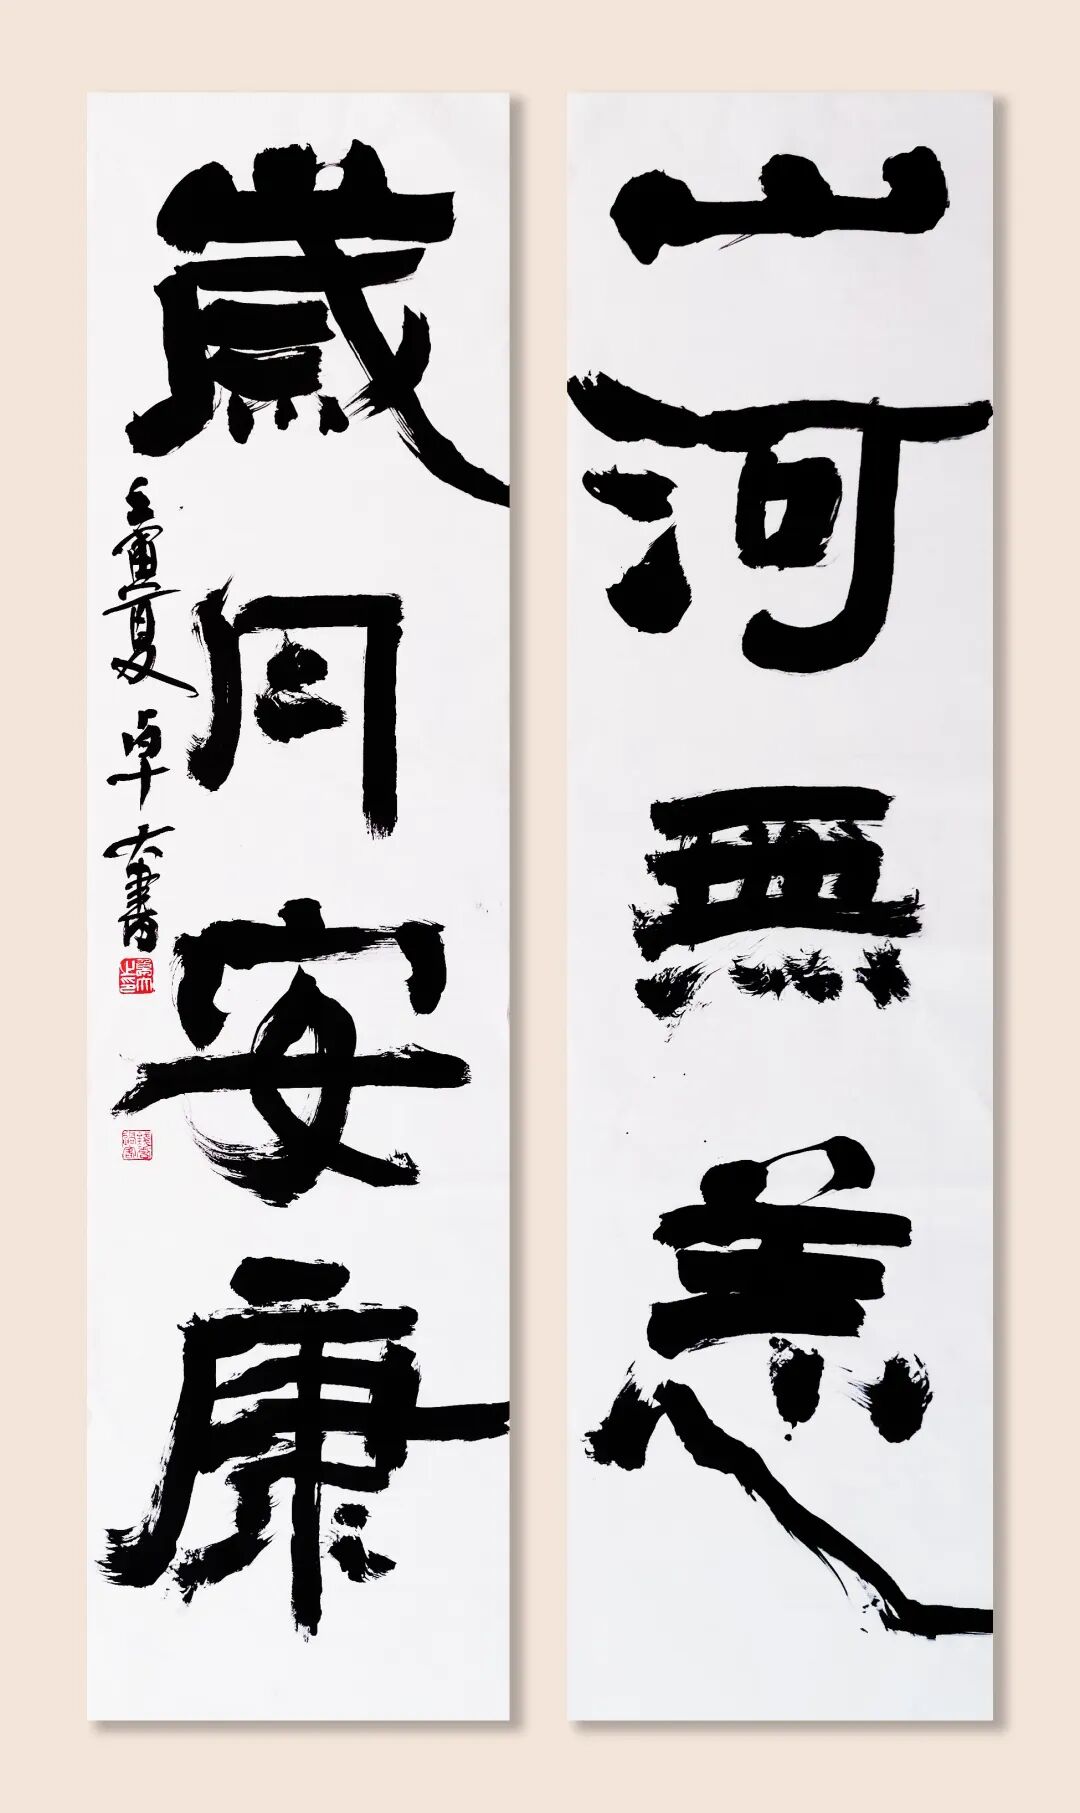 山河無恙
歲月安康
壬寅夏卓大書